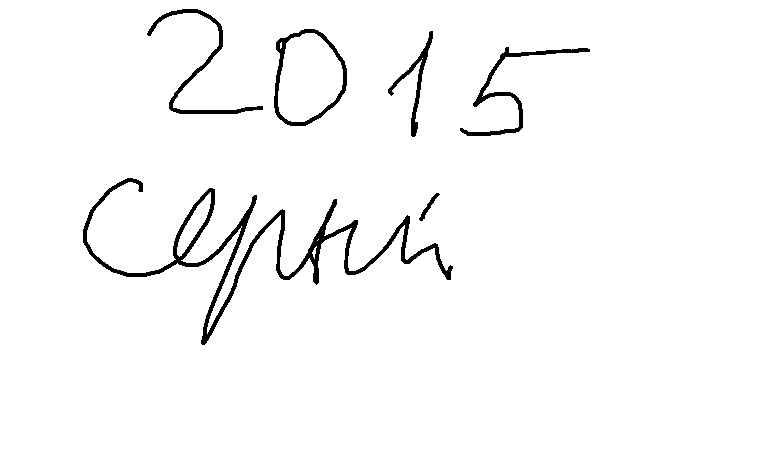 2015
Сергей